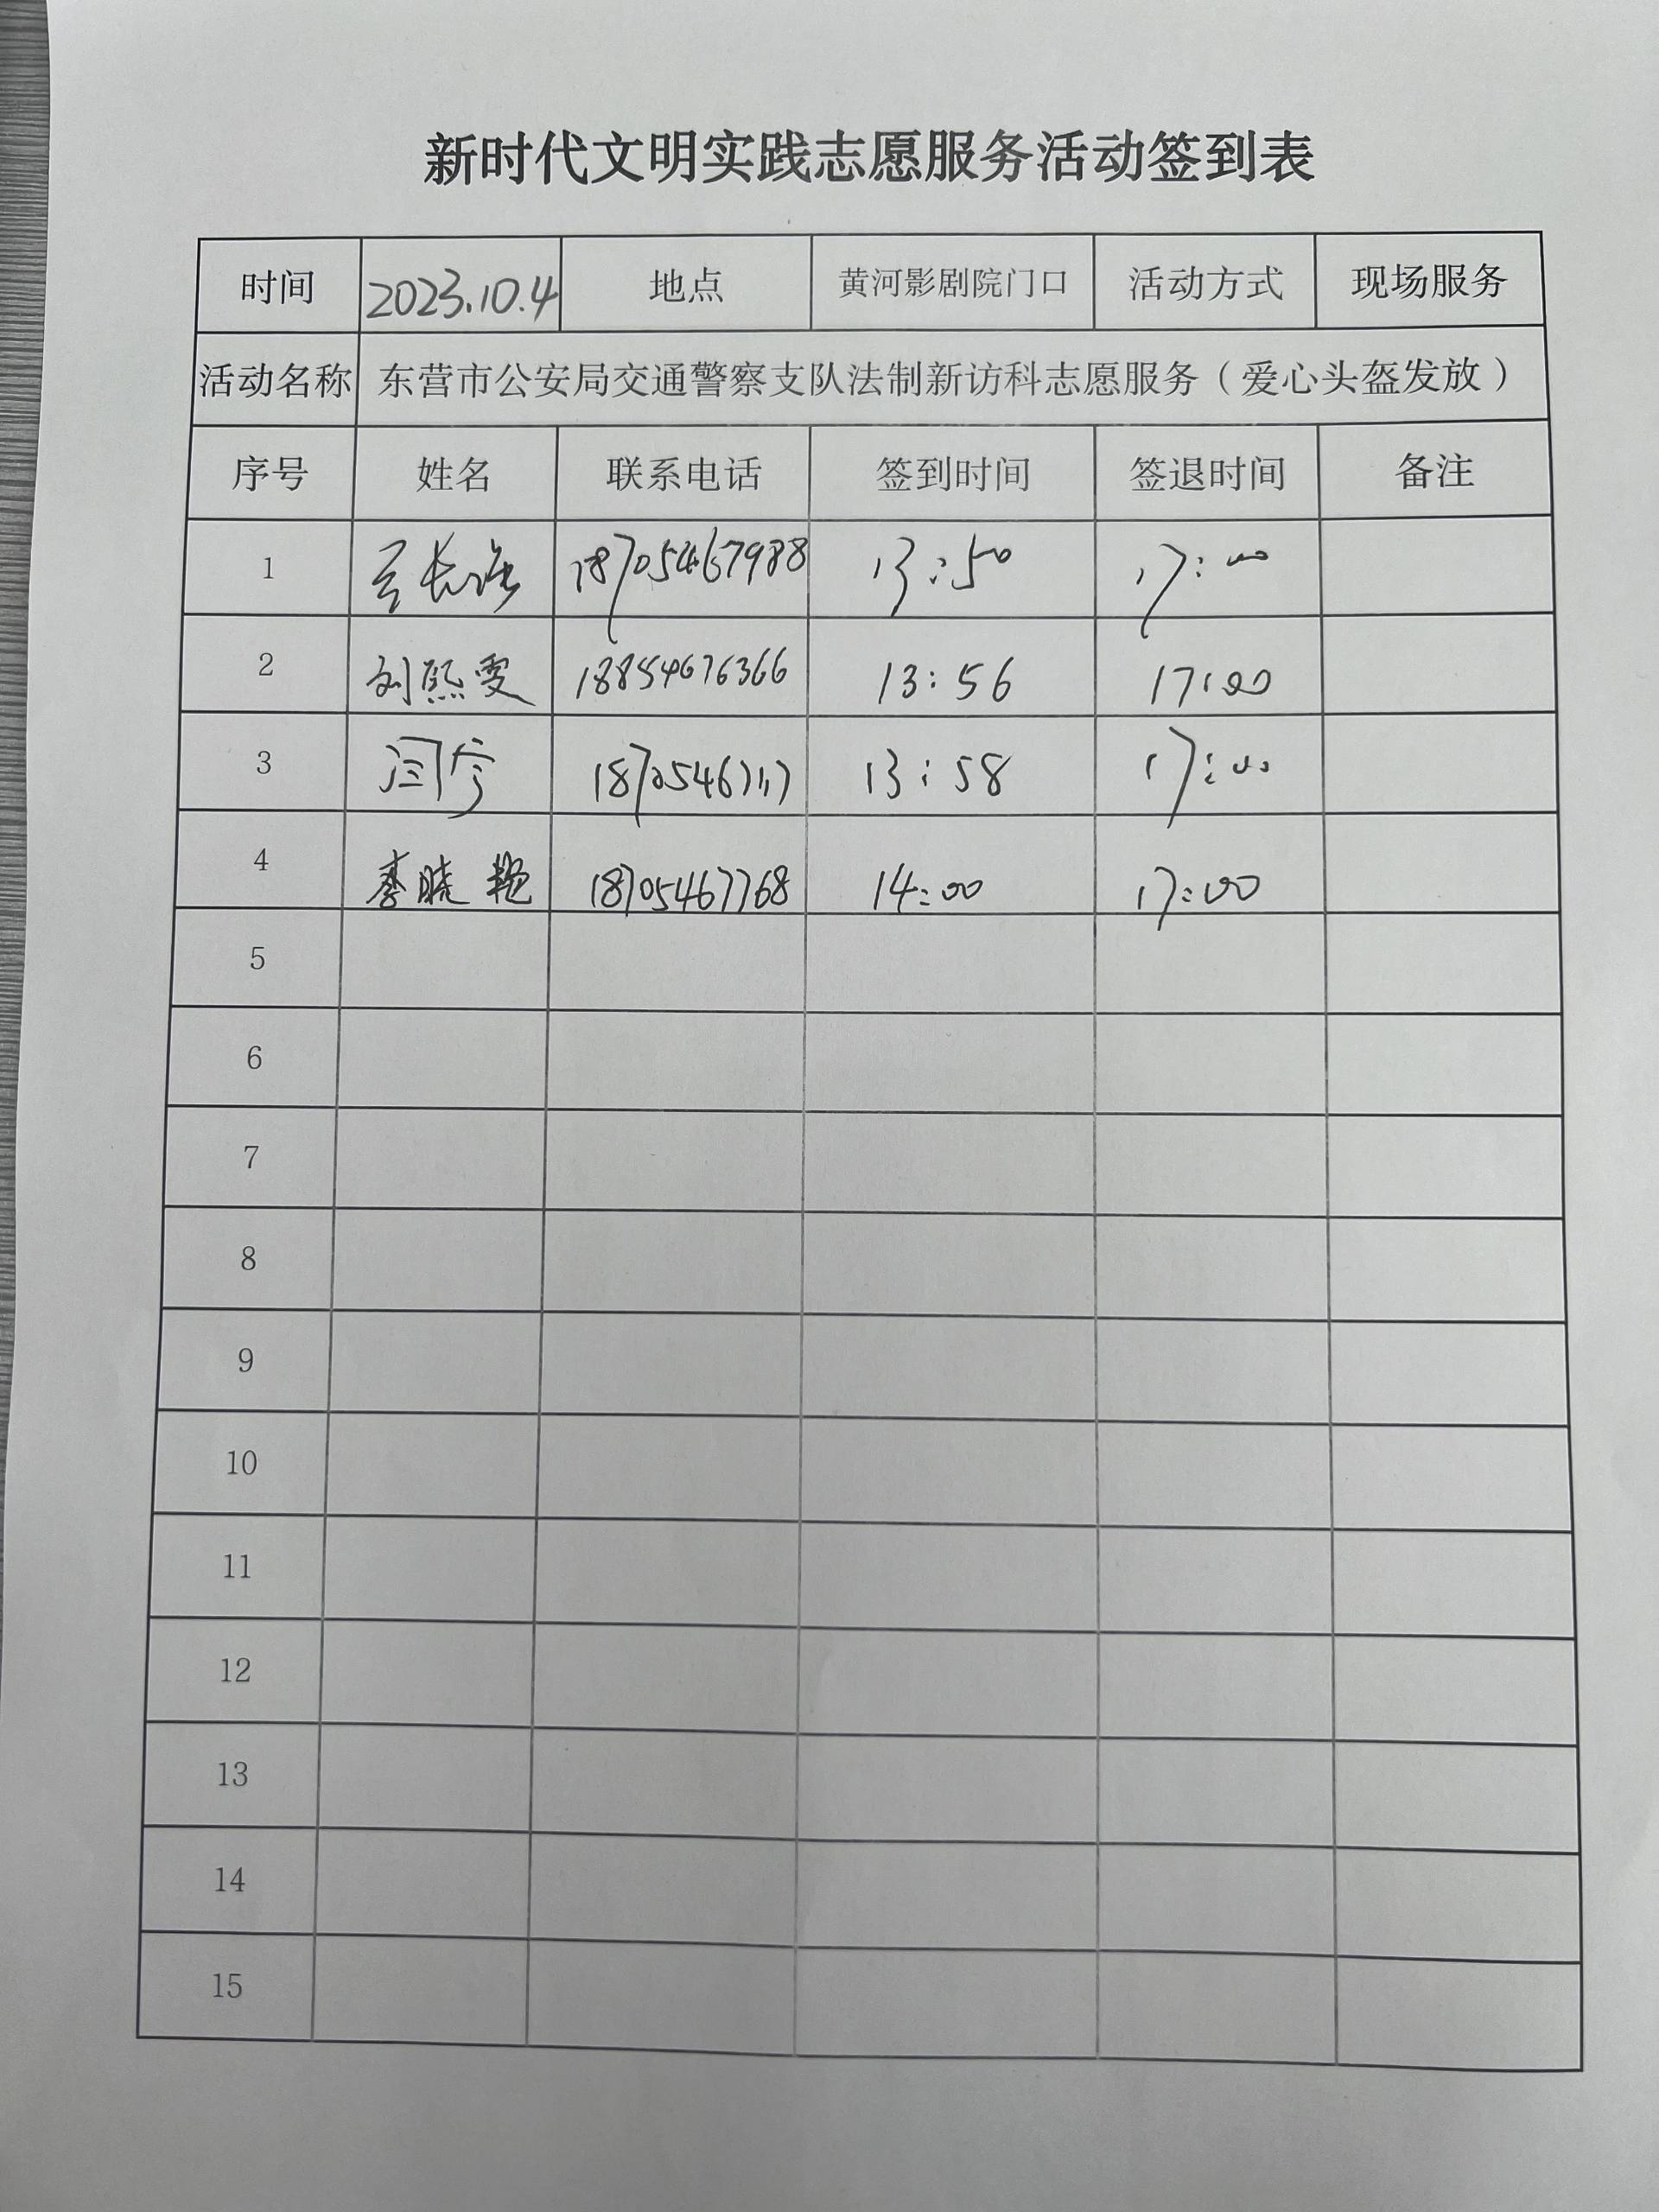 新时代文明实践志愿服务活动签到表
时间 2023.10.4 地点 黄河影剧院门口 活动方式 现场服务
活动名称 东营市公安局交通警察支队法制新访科志愿服务（爱心头盔发放）
序号 姓名 联系电话 签到时间 签退时间 备注
1 18705467988 13:50 17:00
2 刘熙雯 18854676366 13:56 17:00
3 闫 13:58 17:00
4 李晓艳 18705467768 14:00 17:00
5
6
7
8
9
10
11
12
13
14
15